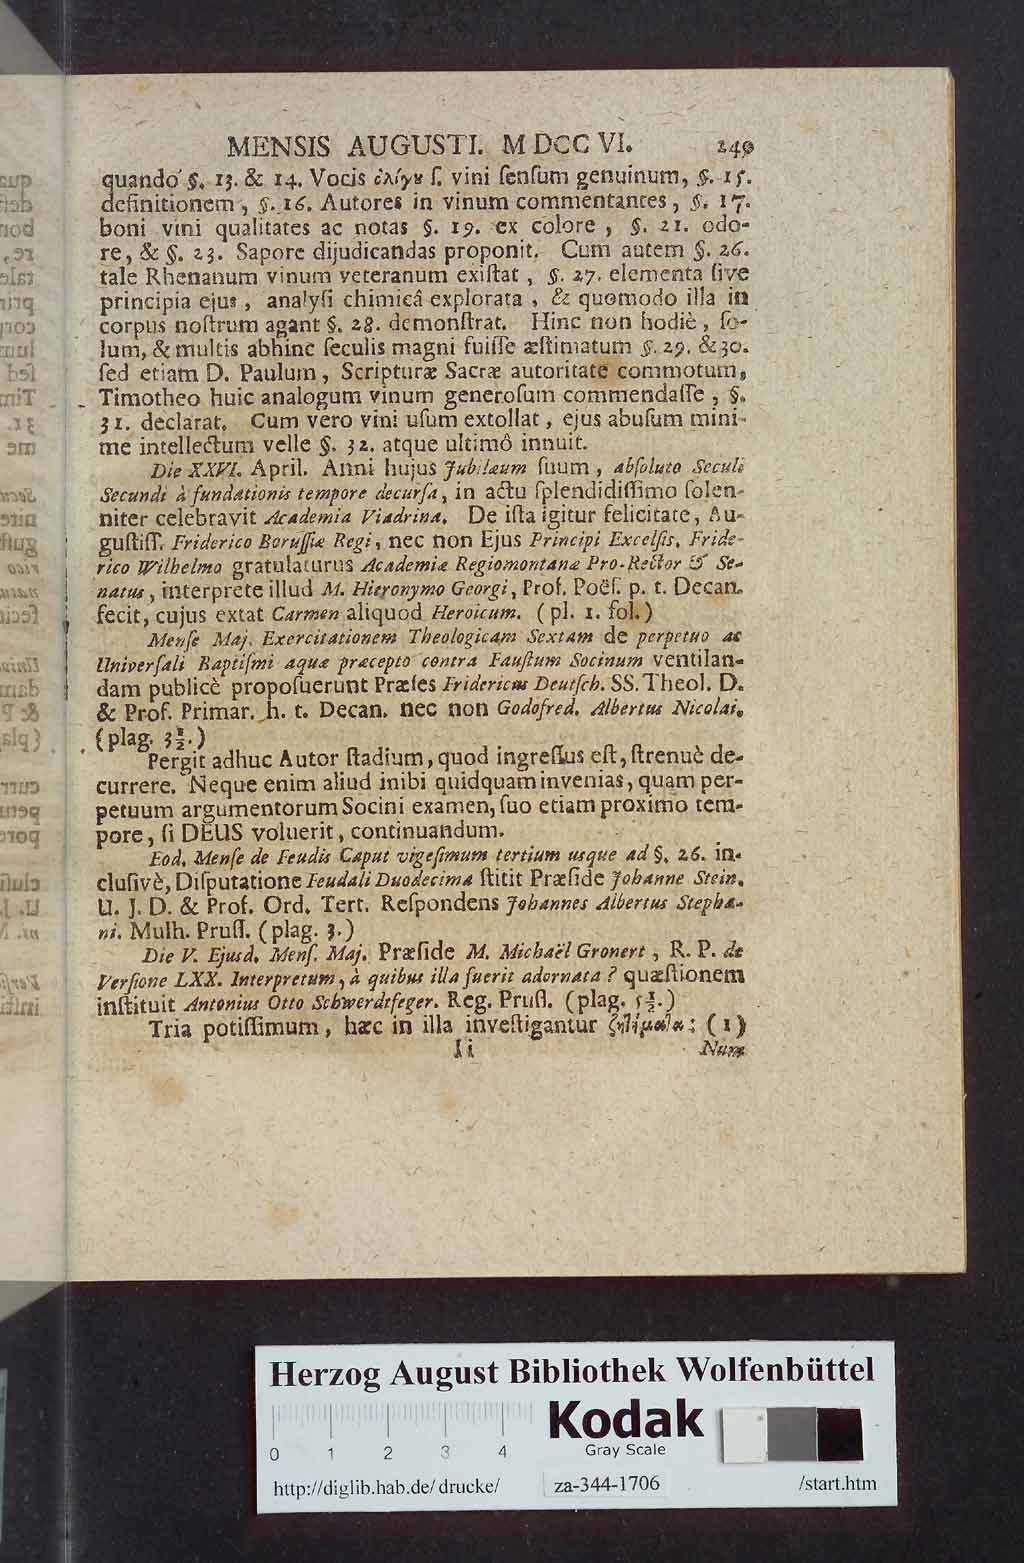 MENSIS AUGUSTI. M DCC VI. 249
quando §. 13. & 14. Vocis ſ. vini ſenſum genuinum, §. 15.
definitionem, §. 16. Autores in vinum commentantes, §. 17.
boni vini qualitates ac notas §. 19. ex colore, §. 21. odo-
re, & §. 23. Sapore dijudicandas proponit. Cum autem §. 26.
tale Rhenanum vinum veteranum exiſtat, §. 27. elementa ſive
principia ejus, analyſi chimicâ explorata, & quomodo illa in
corpus noſtrum agant §. 28. demonſtrat. Hinc non hodiè, ſo-
lum, & multis abhinc ſeculis magni fuiſſe æſtimatum §. 29. & 30.
ſed etiam D. Paulum, Scripturæ Sacræ autoritate commotum,
Timotheo huic analogum vinum generoſum commendaſſe, §.
31. declarat. Cum vero vini uſum extollat, ejus abuſum mini-
me intellectum velle §. 32. atque ultimô innuit.
Die XXVI. April. Anni hujus Jubilæum ſuum, abſoluto Seculi
Secundi à fundationis tempore decurſa, in actu ſplendidiſſimo ſolen-
niter celebravit Academia Viadrina. De iſta igitur felicitate, Au-
guſtiſſ. Friderico Boruſſiæ Regi, nec non Ejus Principi Excelſis. Fride-
rico Wilhelmo gratulaturus Academiæ Regiomontanæ Pro-Rector & Se-
natus, interprete illud M. Hieronymo Georgi, Prof. Poëſ. p. t. Decan.
fecit, cujus extat Carmen aliquod Heroicum. (pl. 1. fol.)
Menſe Maj. Exercitationem Theologicam Sextam de perpetuo ac
Univerſali Baptiſmi aquæ præcepto contra Fauſtum Socinum ventilan-
dam publicè propoſuerunt Præſes Fridericus Deutſch. SS. Theol. D.
& Prof. Primar. h. t. Decan. nec non Godofred. Albertus Nicolai.
(plag. 3½.)
Pergit adhuc Autor ſtadium, quod ingreſſus eſt, ſtrenuè de-
currere. Neque enim aliud inibi quidquam invenias, quam per-
petuum argumentorum Socini examen, ſuo etiam proximo tem-
pore, ſi DEUS voluerit, continuandum.
Eod. Menſe de Feudis Caput vigeſimum tertium usque ad §. 26. in-
cluſivè, Diſputatione Feudali Duodecima ſtitit Præſide Johanne Stein.
U. J. D. & Prof. Ord. Tert. Reſpondens Johannes Albertus Stepha-
ni. Mulh. Pruſſ. (plag. 3.)
Die V. Ejusd. Menſ. Maj. Præſide M. Michaël Gronert, R. P. de
Verſione LXX. Interpretum, à quibus illa fuerit adornata? quæſtionem
inſtituit Antonius Otto Schwerdtfeger. Reg. Pruſſ. (plag. 5½.)
Tria potiſſimum, hæc in illa inveſtigantur ζηλήμαλα: (1)
Ii Num
Herzog August Bibliothek Wolfenbüttel
0 1 2 3 4
Kodak
Gray Scale
http://diglib.hab.de/drucke/ za-344-1706 /start.htm